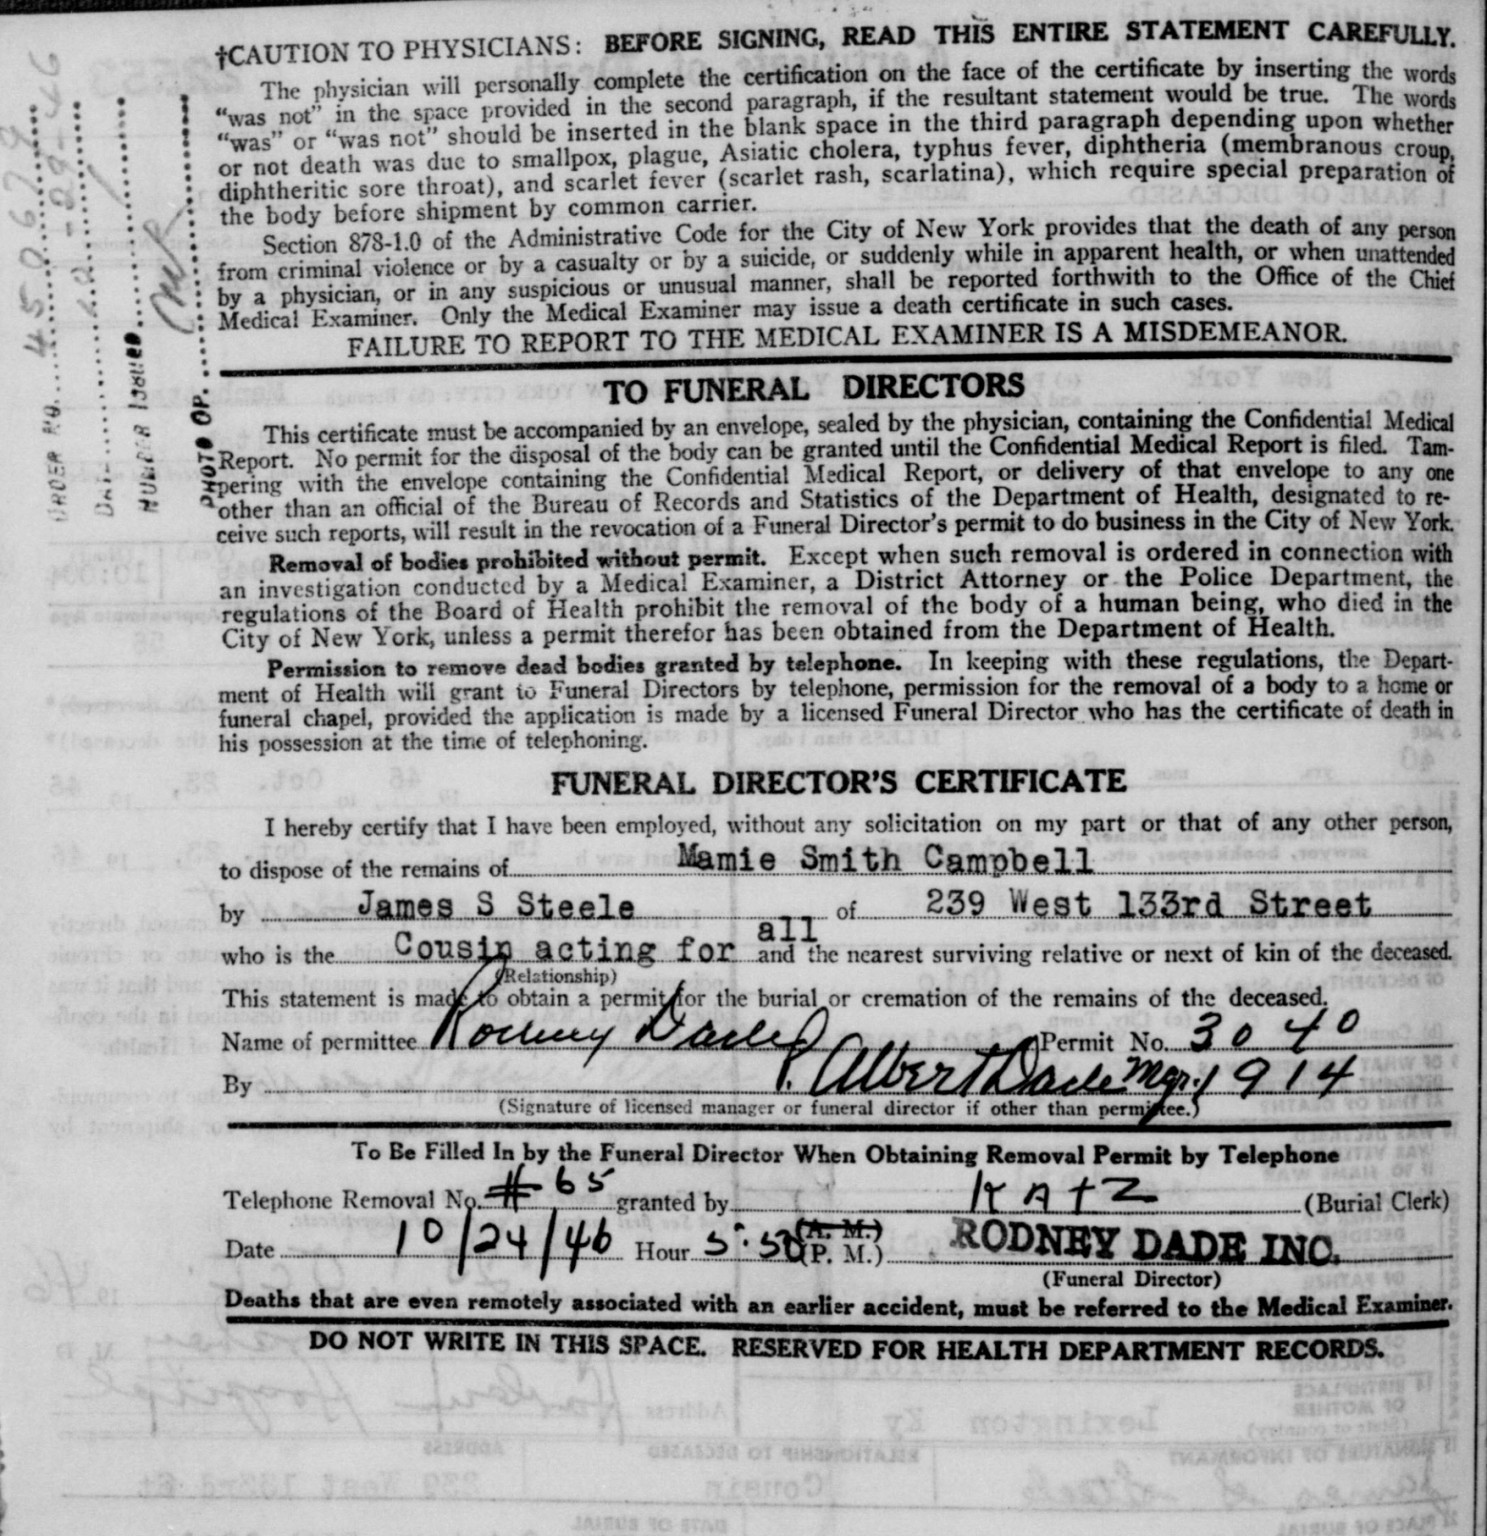 †CAUTION TO PHYSICIANS: BEFORE SIGNING, READ THIS ENTIRE STATEMENT CAREFULLY.
The physician will personally complete the certification on the face of the certificate by inserting the words
"was not" in the space provided in the second paragraph, if the resultant statement would be true. The words
"was" or "was not" should be inserted in the blank space in the third paragraph depending upon whether
or not death was due to smallpox, plague, Asiatic cholera, typhus fever, diphtheria (membranous croup,
diphtheritic sore throat), and scarlet fever (scarlet rash, scarlatina), which require special preparation of
the body before shipment by common carrier.
Section 878-1.0 of the Administrative Code for the City of New York provides that the death of any person
from criminal violence or by a casualty or by a suicide, or suddenly while in apparent health, or when unattended
by a physician, or in any suspicious or unusual manner, shall be reported forthwith to the Office of the Chief
Medical Examiner. Only the Medical Examiner may issue a death certificate in such cases.
FAILURE TO REPORT TO THE MEDICAL EXAMINER IS A MISDEMEANOR.
ORDER NO. 450679
NUMBER ISSUED
PHOTO OP.
TO FUNERAL DIRECTORS
This certificate must be accompanied by an envelope, sealed by the physician, containing the Confidential Medical
Report. No permit for the disposal of the body can be granted until the Confidential Medical Report is filed. Tam-
pering with the envelope containing the Confidential Medical Report, or delivery of that envelope to any one
other than an official of the Bureau of Records and Statistics of the Department of Health, designated to re-
ceive such reports, will result in the revocation of a Funeral Director's permit to do business in the City of New York.
Removal of bodies prohibited without permit. Except when such removal is ordered in connection with
an investigation conducted by a Medical Examiner, a District Attorney or the Police Department, the
regulations of the Board of Health prohibit the removal of the body of a human being, who died in the
City of New York, unless a permit therefor has been obtained from the Department of Health.
Permission to remove dead bodies granted by telephone. In keeping with these regulations, the Depart-
ment of Health will grant to Funeral Directors by telephone, permission for the removal of a body to a home or
funeral chapel, provided the application is made by a licensed Funeral Director who has the certificate of death in
his possession at the time of telephoning.
FUNERAL DIRECTOR'S CERTIFICATE
I hereby certify that I have been employed, without any solicitation on my part or that of any other person,
to dispose of the remains of Mamie Smith Campbell
by James S Steele of 239 West 133rd Street
who is the Cousin acting for all and the nearest surviving relative or next of kin of the deceased.
(Relationship)
This statement is made to obtain a permit for the burial or cremation of the remains of the deceased.
Name of permittee Rodney Dade Permit No. 3040
By P. Albert Dade Mgr. 1914
(Signature of licensed manager or funeral director if other than permittee.)
To Be Filled In by the Funeral Director When Obtaining Removal Permit by Telephone
Telephone Removal No. #65 granted by KATZ (Burial Clerk)
Date 10/24/46 Hour 5:50 (A. M.) (P. M.) RODNEY DADE INC.
(Funeral Director)
Deaths that are even remotely associated with an earlier accident, must be referred to the Medical Examiner.
DO NOT WRITE IN THIS SPACE. RESERVED FOR HEALTH DEPARTMENT RECORDS.